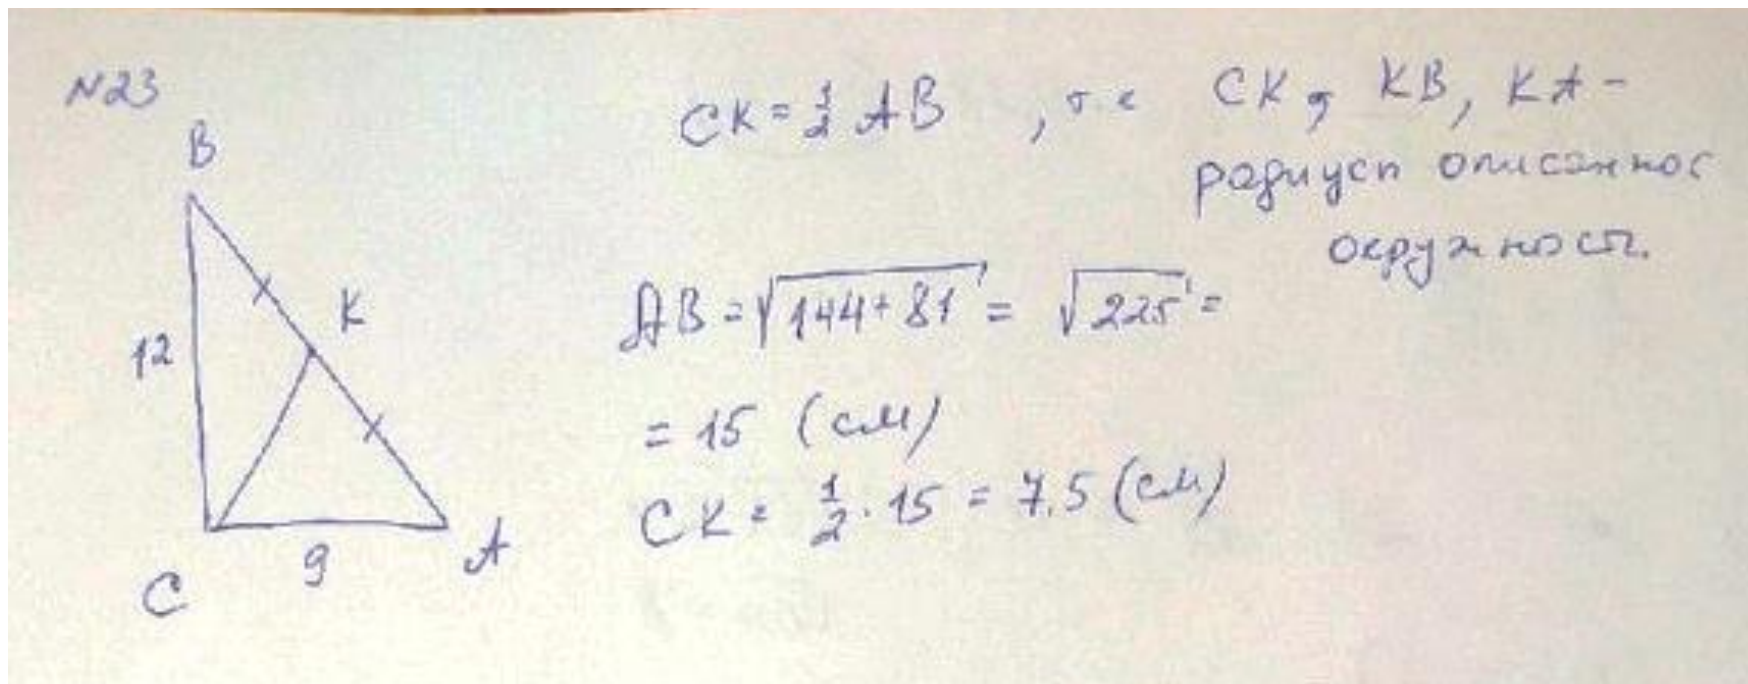 №23
B
K
12
C
9
A
CK = 1/2 AB , т.к CK, KB, KA -
радиусы описанной
окружности.
AB = √144 + 81 = √225 =
= 15 (см)
CK = 1/2 · 15 = 7,5 (см)